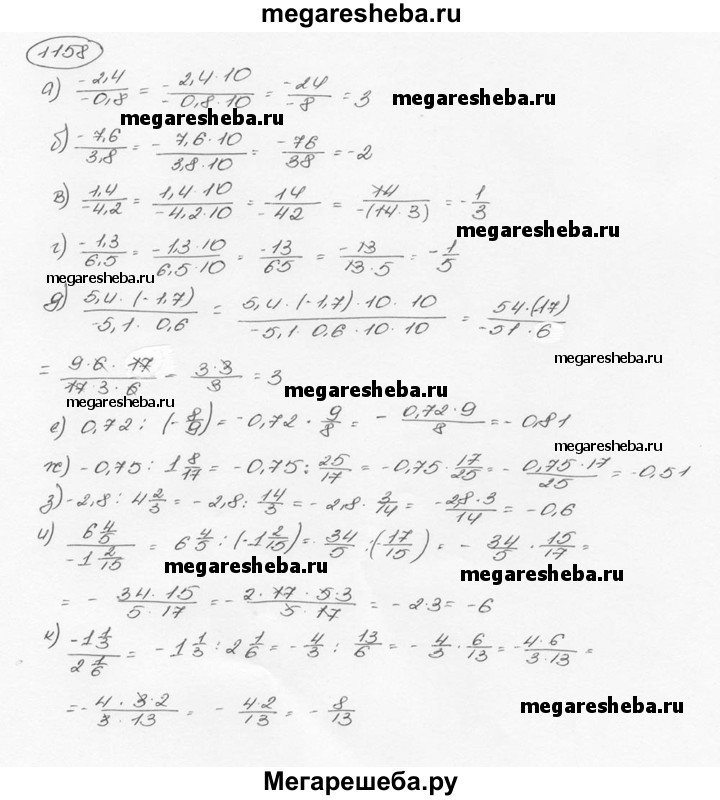 megaresheba.ru
1158
а) -2,4/-0,8 = -2,4·10/-0,8·10 = -24/-8 = 3 megaresheba.ru
megaresheba.ru
б) -7,6/3,8 = -7,6·10/3,8·10 = -76/38 = -2
в) 1,4/-4,2 = 1,4·10/-4,2·10 = 14/-42 = 14/-(14·3) = -1/3
megaresheba.ru
г) -1,3/6,5 = -1,3·10/6,5·10 = -13/65 = -13/13·5 = -1/5
megaresheba.ru
д) 5,4·(-1,7)/-5,1·0,6 = 5,4·(-1,7)·10·10/-5,1·0,6·10·10 = 54·(17)/-51·6
megaresheba.ru
= 9·6·17/17·3·6 - 3·3/3 = 3
megaresheba.ru
е) 0,72 : (-8/9) = -0,72 · 9/8 = - 0,72·9/8 = -0,81
megaresheba.ru
ж) -0,75 : 1 8/17 = -0,75 : 25/17 = -0,75 · 17/25 = - 0,75·17/25 = -0,51
з) -2,8 : 4 2/3 = -2,8 : 14/3 = -2,8 · 3/14 = -2,8·3/14 = -0,6
и) 6 4/5/-1 2/15 = 6 4/5 : (-1 2/15) = 34/5 · (-17/15) = - 34/5 · 15/17 =
megaresheba.ru megaresheba.ru
= - 34·15/5·17 = - 2·17·5·3/5·17 = -2·3 = -6
к) -1 1/3/2 1/6 = -1 1/3 : 2 1/6 = - 4/3 : 13/6 = - 4/3 · 6/13 = -4·6/3·13 =
megaresheba.ru
= - 4·3·2/3·13 = - 4·2/13 = - 8/13
megaresheba.ru
Мегарешеба.ру